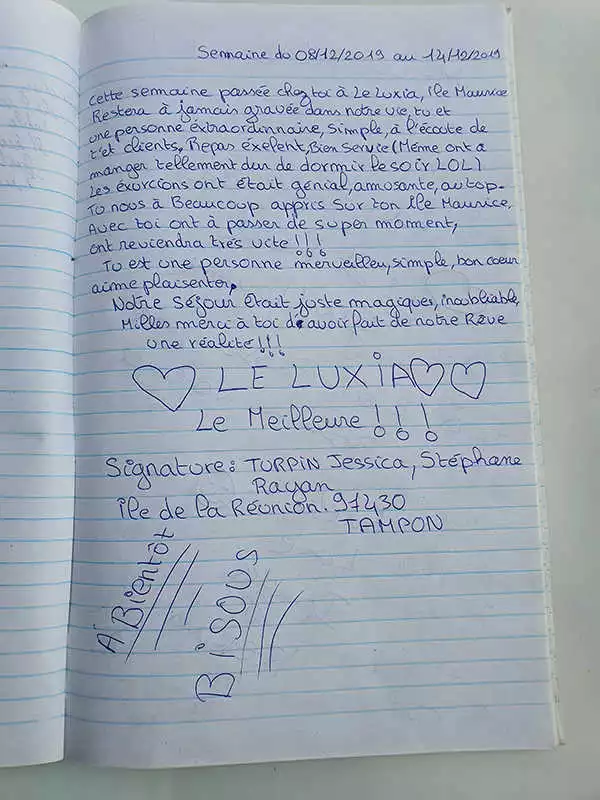 Semaine du 08/12/2019 au 14/12/2019
Cette semaine passée chez toi à Le Luxia, île Maurice
Restera à jamais gravée dans notre vie, tu et
une personne éxtraordinnaire, simple, à l'écoute de
t'et clients, Repas éxelent, Bien Service (Même ont a
manger tellement dur de dormir le soir LOL)
Les éxorcions ont était génial, amusante, au top.
Tu nous à Beaucoup appris sur ton île Maurice,
Avec toi ont à passer de super moment,
ont reviendra très vite !!!
Tu est une personne merveilleu, simple, bon coeur
aime plaisenter,
Notre Séjour était juste magiques, inoubliable,
Milles merci à toi d'avoir fait de notre Rêve
une réalité !!!
LE LUXIA
Le Meilleure !!!
Signature: TURPIN Jessica, Stéphane
Rayan
île de la Réunion. 97430
TAMPON
A Bientôt
Bisous